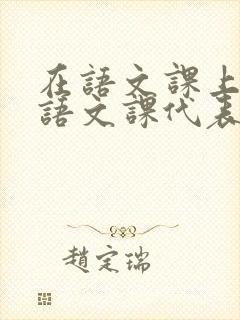 在語文課上
語文課代表
趙定瑞